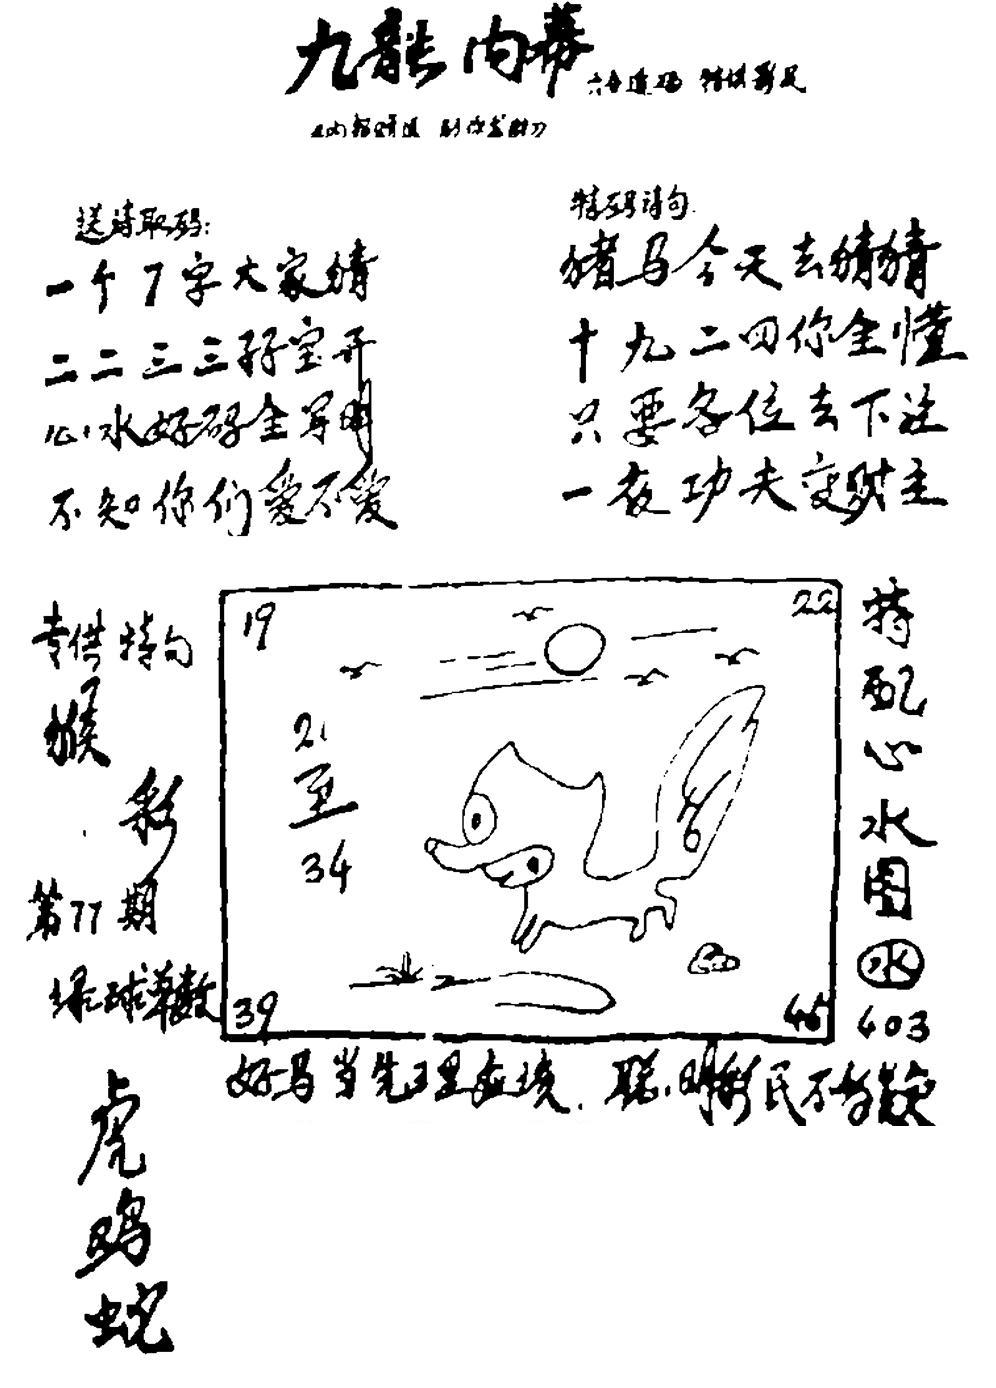 九龍内幕
送诗取码:
一个7字大家猜
二二三三孖宝开
心水好码全写明
不知你们爱不爱
特码诗句
猪马今天去猜猜
十九二四你全懂
只要各位去下注
一夜功夫变财主
专供特句
猴
彩
第77期
绿球单数
虎
鸡
蛇
19
22
21
至
34
39
46
特配心水图
水
403
好马当先 聪明彩民不